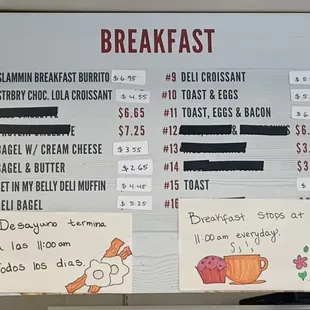 BREAKFAST
SLAMMIN BREAKFAST BURRITO $6.95
STRBRY CHOC. LOLA CROISSANT $4.55
$6.65
$7.25
BAGEL W/ CREAM CHEESE $3.55
BAGEL & BUTTER $2.65
GET IN MY BELLY DELI MUFFIN $4.45
DELI BAGEL $5.25
#9 DELI CROISSANT
#10 TOAST & EGGS
#11 TOAST, EGGS & BACON
#12 &
#13
#14
#15 TOAST
#16
Desayuno termina
a las 11:00am
Todos los dias.
Breakfast stops at
11:00am everyday!